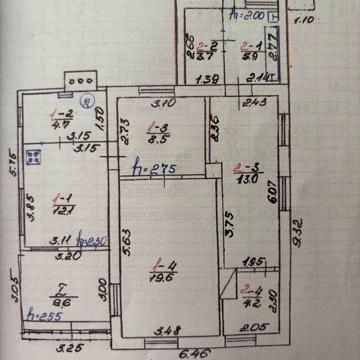 h=2.00
1.10
2.66
2-2
3.7
2-1
5.9
2.77
1.39
2.14
3.10
2.43
1-2
4.7
1.50
3.15
3.15
2.73
1-3
8.5
2.36
h=2.75
2-3
13.0
6.07
5.75
3.85
1-1
12.1
3.11
h=2.30
3.20
5.63
1-4
19.6
3.75
9.32
1.95
3.05
I
9.6
3.00
h=2.55
2-4
4.2
2.30
3.25
3.48
2.05
6.46